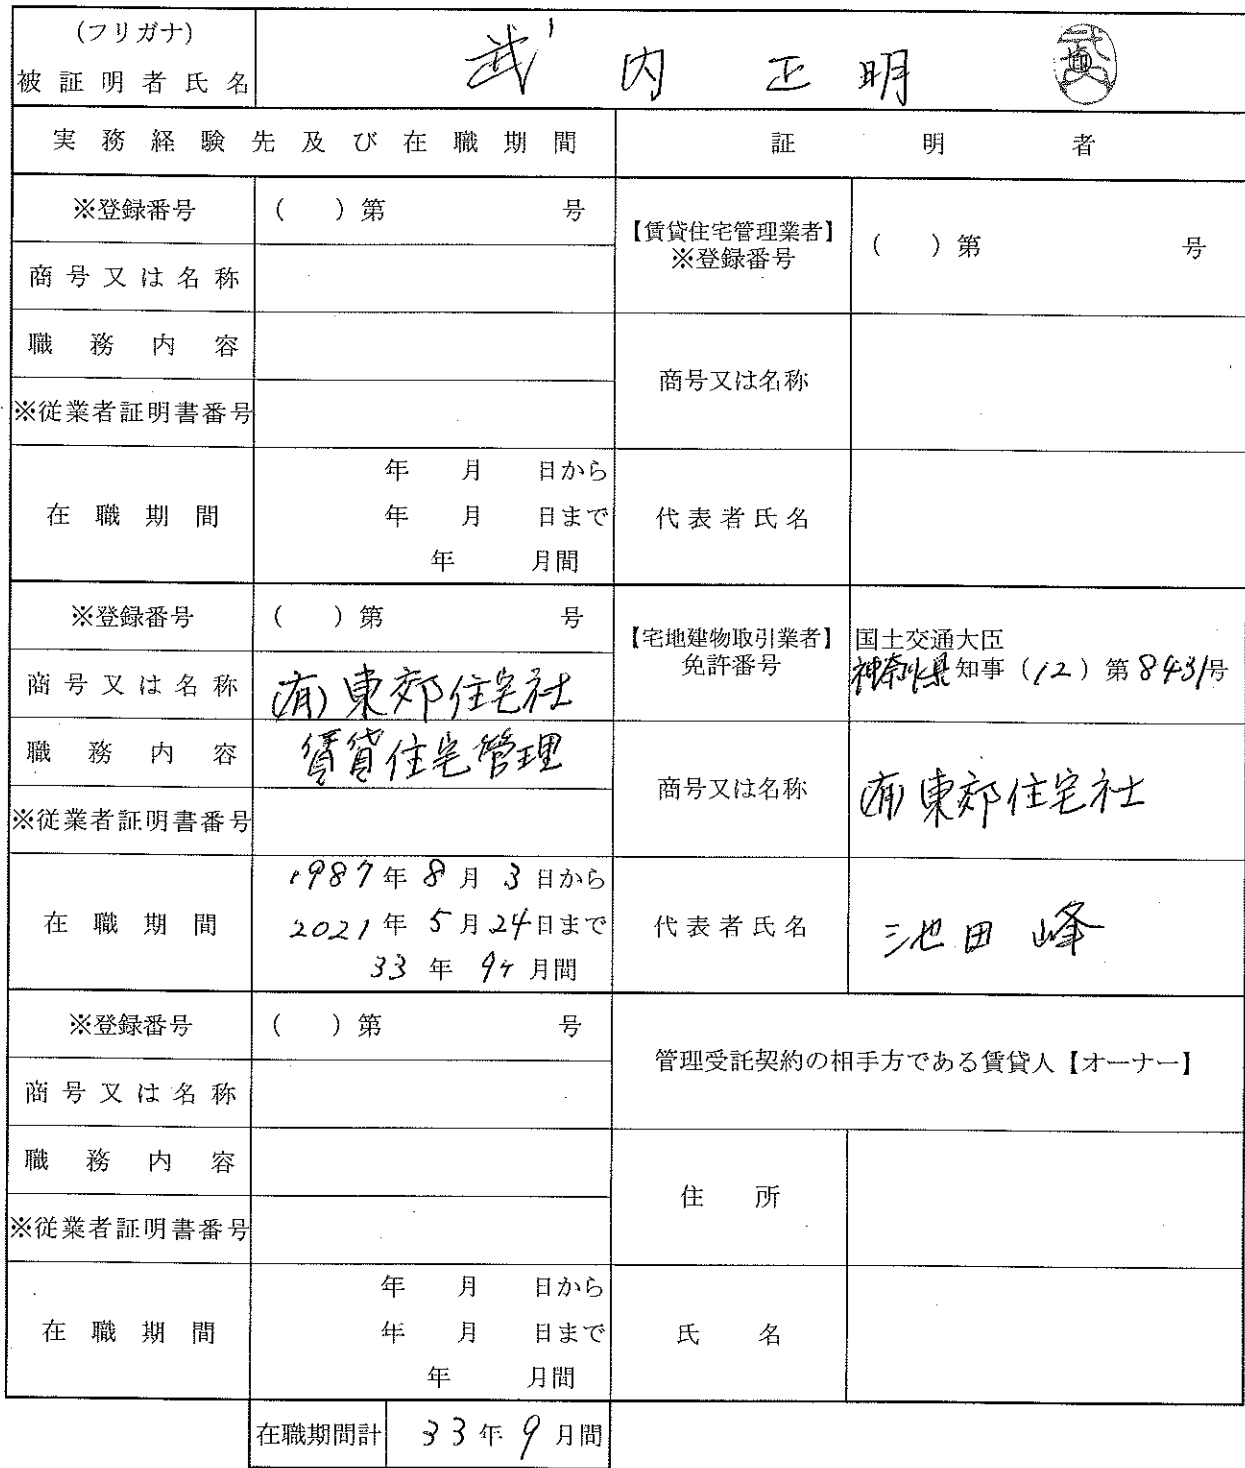 (フリガナ)
被証明者氏名 武内 正明
実務経験先及び在職期間 証明者
※登録番号 ( ) 第 号 【賃貸住宅管理業者】 ※登録番号 ( ) 第 号
商号又は名称
職務内容 商号又は名称
※従業者証明書番号
年 月 日から
在職期間 年 月 日まで 代表者氏名
年 月間
※登録番号 ( ) 第 号 【宅地建物取引業者】 免許番号 国土交通大臣
神奈川県 知事 (12) 第 8431号
商号又は名称 (有)東郊住宅社
職務内容 賃貸住宅管理 商号又は名称 (有)東郊住宅社
※従業者証明書番号
1987年 8月 3日から
在職期間 2021年 5月 24日まで 代表者氏名 池田 峰
33年 9ヶ月間
※登録番号 ( ) 第 号 管理受託契約の相手方である賃貸人【オーナー】
商号又は名称
職務内容 住所
※従業者証明書番号
年 月 日から
在職期間 年 月 日まで 氏名
年 月間
在職期間計 33年 9月間